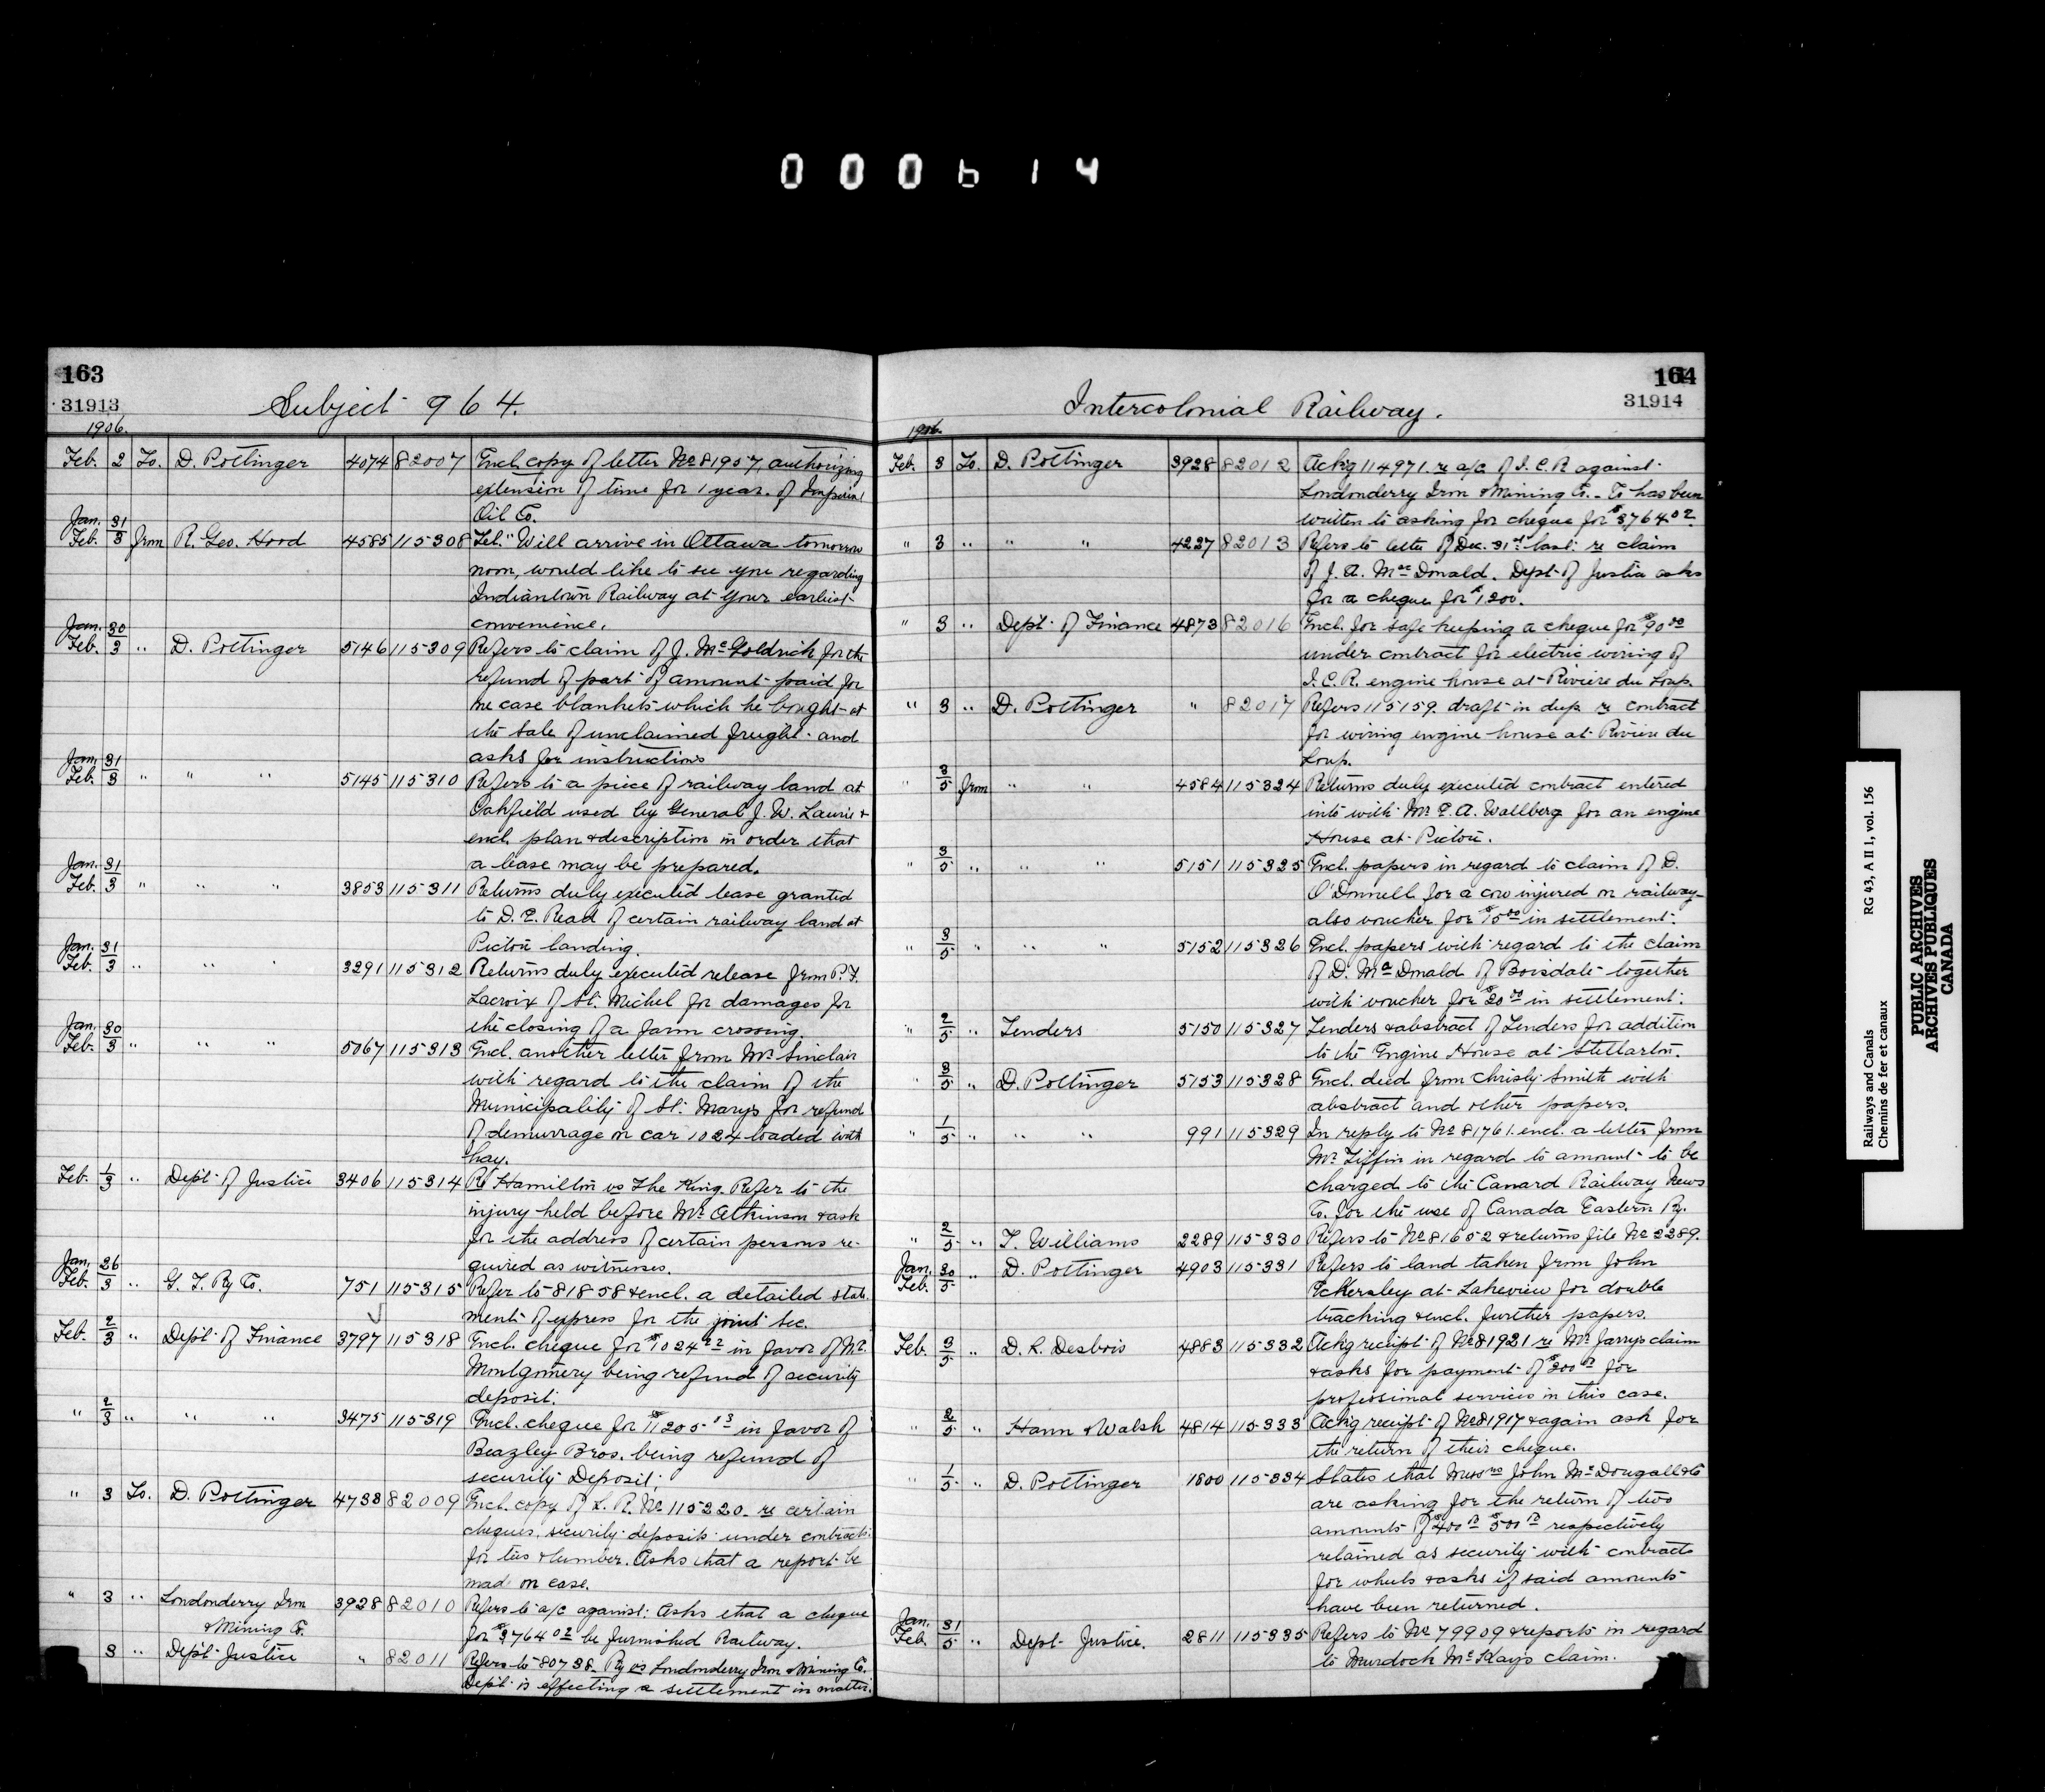 0 0 0 6 1 4
163
31913
Subject 964.
1906.
Feb. 2 To. D. Pottinger 4074 82007 Encl. copy of letter No 81907, authorizing
extension of time for 1 year. of Imperial
Oil Co.
Jan. 31
Feb. 3 from R. Geo. Hood 4585 115308 Tel. "Will arrive in Ottawa tomorrow
noon, would like to see you regarding
Indiantown Railway at your earliest
convenience.
Jan. 30
Feb. 3 " D. Pottinger 5146 115309 Refers to claim of J. McGoldrich for the
refund of part of amount paid for
one case blankets which he bought at
the sale of unclaimed freight and
asks for instructions
Jan. 31
Feb. 3 " " " 5145 115310 Refers to a piece of railway land at
Oakfield used by General J. W. Laurie &
encl. plan & description in order that
a lease may be prepared.
Jan. 31
Feb. 3 " " " 3853 115311 Returns duly executed lease granted
to D. E. Read of certain railway land at
Pictou landing.
Jan. 31
Feb. 3 " " " 3291 115312 Returns duly executed release from P. F.
Lacroix of St. Michel for damages for
the closing of a farm crossing.
Jan. 30
Feb. 3 " " " 5067 115313 Encl. another letter from Mr Sinclair
with regard to the claim of the
Municipality of St. Marys for refund
of demurrage on car 1024 loaded with
hay.
Feb. 1/3 " Dept. of Justice 3406 115314 Re Hamilton vs The King. Refer to the
injury held before Mr Atkinson & ask
for the address of certain persons re-
quired as witnesses.
Jan. 26
Feb. 3 " G. T. Ry Co. 751 115315 Refer to 81858 & encl. a detailed state
ment of express for the joint sec.
Feb. 2/3 " Dept. of Finance 3797 115318 Encl. cheque for $1024 in favor of Mr.
Montgomery being refund of security
deposit.
" 2/3 " " " 3475 115319 Encl. cheque for $11205 13 in favor of
Beazley Bros. being refund of
security Deposit.
" 3 To. D. Pottinger 4733 82009 Encl. copy of L. R. No 115220 re certain
cheques, security deposits under contracts
for ties & lumber. Asks that a report be
mad on case.
" 3 " Londonderry Iron 3928 82010 Refers to a/c against: Asks that a cheque
& Mining Co. for $3764 02 be furnished Railway.
3 " Dept Justice " 82011 Refers to 80738 Ry vs Londonderry Iron & Mining Co.
Dept is effecting a settlement in matter.
164
31914
Intercolonial Railway.
1906.
Feb. 3 To. D. Pottinger 3928 82012 Ackg 114971. re a/c of I. C. R against
Londonderry Iron & Mining Co. - Co has been
written to asking for cheque for $3764 02.
" 3 " " " 4227 82013 Refers to letter of Dec. 31st last: re claim
of J. A. MacDonald. Dept of Justice asks
for a cheque for $1200.
" 3 " Dept of Finance 4873 82016 Encl. for safe keeping a cheque for $90 00
under contract for electric wiring of
I. C. R. engine house at Riviere du Loup.
" 3 " D. Pottinger " 82017 Refers 115159. draft in dup. re contract
for wiring engine house at Riviere du
Loup.
" 3/5 from " " 4584 115324 Returns duly executed contract entered
into with Mr E. A. Wallberg for an engine
House at Pictou.
" 3/5 " " " 5151 115325 Encl. papers in regard to claim of D.
O'Donnell for a cow injured on railway-
also voucher for $15 00 in settlement.
" 3/5 " " " 5152 115326 Encl. papers with regard to the claim
of D. McDonald of Boisdale together
with voucher for $20 00 in settlement.
" 2/5 " Tenders 5150 115327 Tenders & abstract of Tenders for addition
to the Engine House at Stellarton.
" 3/5 " D. Pottinger 5153 115328 Encl. deed from Christy Smith with
abstract and other papers.
" 1/5 " " " 991 115329 In reply to No 81761. encl. a letter from
Mr. Tiffin in regard to amount to be
charged to the Canard Railway News
Co. for the use of Canada Eastern Ry.
" 2/5 " T. Williams 2289 115330 Refers to No 81652 & returns file No 2289.
Jan. 30
Feb. 5 " D. Pottinger 4903 115331 Refers to land taken from John
Eckersley at Lakeview for double
tracking & encl. further papers.
Feb. 3/5 " D. R. Desbois 4883 115332 Ackg receipt of No 81921 re Mr Jarry's claim
& asks for payment of $300 for
professional services in this case.
" 2/5 " Hann & Walsh 4814 115333 Ackg receipt of No 81917 & again ask for
the return of their cheque.
" 1/5 " D. Pottinger 1800 115334 States that Messrs John McDougall & Co
are asking for the return of two
amounts of $400 $500 respectively
retained as security with contracts
for wheels & asks if said amounts
have been returned.
Jan. 31
Feb. 5 " Dept. Justice. 2811 115335 Refers to No 79909 & reports in regard
to Murdoch McKay's claim.
Railways and Canals RG 43, A II 1, vol. 156
Chemins de fer et canaux
PUBLIC ARCHIVES
ARCHIVES PUBLIQUES
CANADA